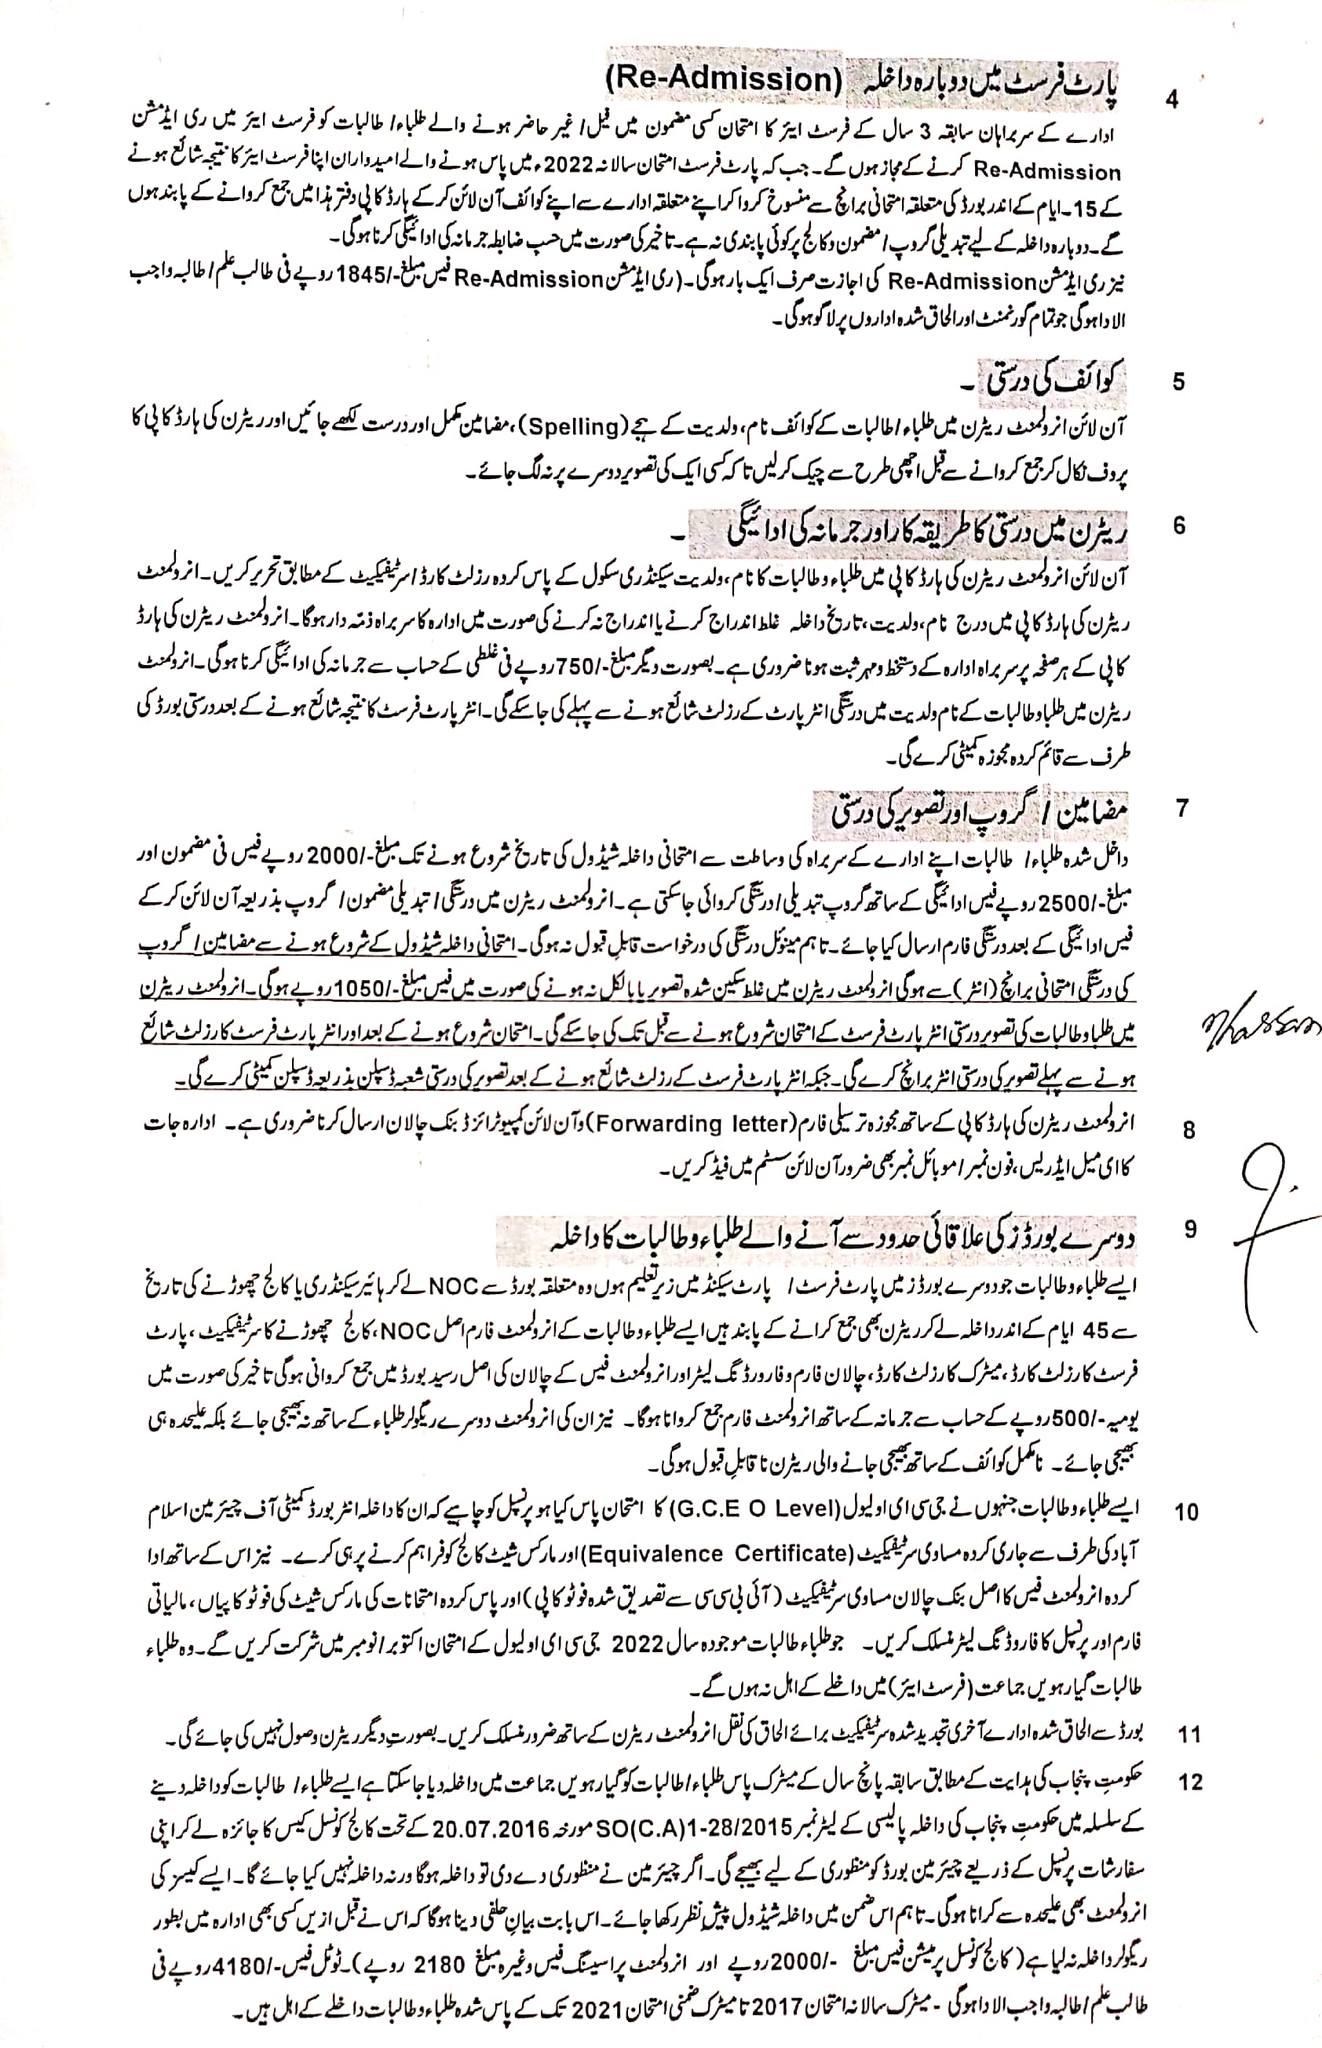 4 پارٹ فرسٹ میں دوبارہ داخلہ (Re-Admission)
ادارے کے سربراہان سابقہ 3 سال کے فرسٹ ایئر کا امتحان کسی مضمون میں فیل/ غیر حاضر ہونے والے طلباء/ طالبات کو فرسٹ ایئر میں ری ایڈمشن
Re-Admission کرنے کے مجاز ہوں گے۔ جب کہ پارٹ فرسٹ امتحان سالانہ 2022ء میں پاس ہونے والے امیدواران اپنا فرسٹ ایئر کا نتیجہ شائع ہونے
کے 15۔ ایام کے اندر بورڈ کی متعلقہ امتحانی برانچ سے منسوخ کروا کر اپنے متعلقہ ادارے سے اپنے کوائف آن لائن کر کے ہارڈ کاپی دفتر ہذا میں جمع کروانے کے پابند ہوں
گے۔ دوبارہ داخلہ کے لیے تبدیلی گروپ/ مضمون و کالج پر کوئی پابندی نہ ہے۔ تاخیر کی صورت میں حسب ضابطہ جرمانہ کی ادائیگی کرنا ہوگی۔
نیز ری ایڈمشن Re-Admission کی اجازت صرف ایک بار ہوگی۔ (ری ایڈمشن Re-Admission فیس مبلغ -/1845 روپے فی طالب علم/ طالبہ واجب
الادا ہوگی جو تمام گورنمنٹ اور الحاق شدہ اداروں پر لاگو ہوگی۔
5 کوائف کی درستی ۔
آن لائن انرولمنٹ ریٹرن میں طلباء/ طالبات کے کوائف نام، ولدیت کے ہجے (Spelling)، مضامین مکمل اور درست لکھے جائیں اور ریٹرن کی ہارڈ کاپی کا
پروف نکال کر جمع کروانے سے قبل اچھی طرح سے چیک کر لیں تاکہ کسی ایک کی تصویر دوسرے پر نہ لگ جائے۔
6 ریٹرن میں درستی کا طریقہ کار اور جرمانہ کی ادائیگی ۔
آن لائن انرولمنٹ ریٹرن کی ہارڈ کاپی میں طلباء و طالبات کا نام، ولدیت سیکنڈری سکول کے پاس کردہ رزلٹ کارڈ/ سرٹیفکیٹ کے مطابق تحریر کریں۔ انرولمنٹ
ریٹرن کی ہارڈ کاپی میں درج نام، ولدیت، تاریخ داخلہ غلط اندراج کرنے یا اندراج نہ کرنے کی صورت میں ادارہ کا سربراہ ذمہ دار ہوگا۔ انرولمنٹ ریٹرن کی ہارڈ
کاپی کے ہر صفحہ پر سربراہ ادارہ کے دستخط و مہر ثبت ہونا ضروری ہے۔ بصورت دیگر مبلغ -/750 روپے فی غلطی کے حساب سے جرمانہ کی ادائیگی کرنا ہوگی۔ انرولمنٹ
ریٹرن میں طلبا و طالبات کے نام ولدیت میں درستگی انٹر پارٹ کے رزلٹ شائع ہونے سے پہلے کی جا سکے گی۔ انٹر پارٹ فرسٹ کا نتیجہ شائع ہونے کے بعد درستی بورڈ کی
طرف سے قائم کردہ مجوزہ کمیٹی کرے گی۔
7 مضامین / گروپ اور تصویر کی درستی
داخل شدہ طلباء/ طالبات اپنے ادارے کے سربراہ کی وساطت سے امتحانی داخلہ شیڈول کی تاریخ شروع ہونے تک مبلغ -/2000 روپے فیس فی مضمون اور
مبلغ -/2500 روپے فیس ادائیگی کے ساتھ گروپ تبدیلی/ درستگی کروائی جا سکتی ہے۔ انرولمنٹ ریٹرن میں درستگی/ تبدیلی مضمون/ گروپ بذریعہ آن لائن کر کے
فیس ادائیگی کے بعد درستگی فارم ارسال کیا جائے۔ تاہم مینوئل درستگی کی درخواست قابلِ قبول نہ ہوگی۔ امتحانی داخلہ شیڈول کے شروع ہونے سے مضامین/ گروپ
کی درستگی امتحانی برانچ (انٹر) سے ہوگی انرولمنٹ ریٹرن میں غلط سکین شدہ تصویر یا بالکل نہ ہونے کی صورت میں فیس مبلغ -/1050 روپے ہوگی۔ انرولمنٹ ریٹرن
میں طلبا و طالبات کی تصویر درستی انٹر پارٹ فرسٹ کے امتحان شروع ہونے سے قبل تک کی جا سکے گی۔ امتحان شروع ہونے کے بعد اور انٹر پارٹ فرسٹ کا رزلٹ شائع
ہونے سے پہلے تصویر کی درستی انٹر برانچ کرے گی۔ جبکہ انٹر پارٹ فرسٹ کے رزلٹ شائع ہونے کے بعد تصویر کی درستی شعبہ ڈسپلن بذریعہ ڈسپلن کمیٹی کرے گی۔
8 انرولمنٹ ریٹرن کی ہارڈ کاپی کے ساتھ مجوزہ ترسیلی فارم (Forwarding letter) و آن لائن کمپیوٹرائزڈ بنک چالان ارسال کرنا ضروری ہے۔ ادارہ جات
کا ای میل ایڈریس، فون نمبر/ موبائل نمبر بھی ضرور آن لائن سسٹم میں فیڈ کریں۔
9 دوسرے بورڈز کی علاقائی حدود سے آنے والے طلباء و طالبات کا داخلہ
ایسے طلباء و طالبات جو دوسرے بورڈز میں پارٹ فرسٹ/ پارٹ سیکنڈ میں زیر تعلیم ہوں وہ متعلقہ بورڈ سے NOC لے کر ہائیر سیکنڈری یا کالج چھوڑنے کی تاریخ
سے 45 ایام کے اندر داخلہ لے کر ریٹرن بھی جمع کرانے کے پابند ہیں ایسے طلباء و طالبات کے انرولمنٹ فارم اصل NOC، کالج چھوڑنے کا سرٹیفکیٹ، پارٹ
فرسٹ کا رزلٹ کارڈ، میٹرک کا رزلٹ کارڈ، چالان فارم و فارورڈنگ لیٹر اور انرولمنٹ فیس کے چالان کی اصل رسید بورڈ میں جمع کروانی ہوگی تاخیر کی صورت میں
یومیہ -/500 روپے کے حساب سے جرمانہ کے ساتھ انرولمنٹ فارم جمع کروانا ہوگا۔ نیز ان کی انرولمنٹ دوسرے ریگولر طلباء کے ساتھ نہ بھیجی جائے بلکہ علیحدہ ہی
بھیجی جائے۔ نامکمل کوائف کے ساتھ بھیجی جانے والی ریٹرن ناقابلِ قبول ہوگی۔
10 ایسے طلباء و طالبات جنہوں نے جی سی ای او لیول (G.C.E O Level) کا امتحان پاس کیا ہو پرنسپل کو چاہیے کہ ان کا داخلہ انٹر بورڈ کمیٹی آف چیئرمین اسلام
آباد کی طرف سے جاری کردہ مساوی سرٹیفکیٹ (Equivalence Certificate) اور مارکس شیٹ کالج کو فراہم کرنے پر ہی کرے۔ نیز اس کے ساتھ ادا
کردہ انرولمنٹ فیس کا اصل بنک چالان مساوی سرٹیفکیٹ (آئی بی سی سی سے تصدیق شدہ فوٹو کاپی) اور پاس کردہ امتحانات کی مارکس شیٹ کی فوٹو کاپیاں، مالیاتی
فارم اور پرنسپل کا فاروڈنگ لیٹر منسلک کریں۔ جو طلباء طالبات موجودہ سال 2022 جی سی ای او لیول کے امتحان اکتوبر/ نومبر میں شرکت کریں گے۔ وہ طلباء
طالبات گیارہویں جماعت (فرسٹ ایئر) میں داخلے کے اہل نہ ہوں گے۔
11 بورڈ سے الحاق شدہ ادارے آخری تجدید شدہ سرٹیفکیٹ برائے الحاق کی نقل انرولمنٹ ریٹرن کے ساتھ ضرور منسلک کریں۔ بصورتِ دیگر ریٹرن وصول نہیں کی جائے گی۔
12 حکومتِ پنجاب کی ہدایت کے مطابق سابقہ پانچ سال کے میٹرک پاس طلباء/ طالبات کو گیارہویں جماعت میں داخلہ دیا جا سکتا ہے ایسے طلباء/ طالبات کو داخلہ دینے
کے سلسلہ میں حکومتِ پنجاب کی داخلہ پالیسی کے لیٹر نمبر SO(C.A)1-28/2015 مورخہ 20.07.2016 کے تحت کالج کونسل کیس کا جائزہ لے کر اپنی
سفارشات پرنسپل کے ذریعے چیئرمین بورڈ کو منظوری کے لیے بھیجے گی۔ اگر چیئرمین نے منظوری دے دی تو داخلہ ہوگا ورنہ داخلہ نہیں کیا جائے گا۔ ایسے کیسز کی
انرولمنٹ بھی علیحدہ سے کرانا ہوگی۔ تاہم اس ضمن میں داخلہ شیڈول پیشِ نظر رکھا جائے۔ اس بابت بیانِ حلفی دینا ہوگا کہ اس نے قبل ازیں کسی بھی ادارہ میں بطور
ریگولر داخلہ نہ لیا ہے (کالج کونسل پرمیشن فیس مبلغ -/2000 روپے اور انرولمنٹ پراسیسنگ فیس وغیرہ مبلغ 2180 روپے)۔ ٹوٹل فیس -/4180 روپے فی
طالب علم/ طالبہ واجب الادا ہوگی ۔ میٹرک سالانہ امتحان 2017 تا میٹرک ضمنی امتحان 2021 تک کے پاس شدہ طلباء و طالبات داخلے کے اہل ہیں۔